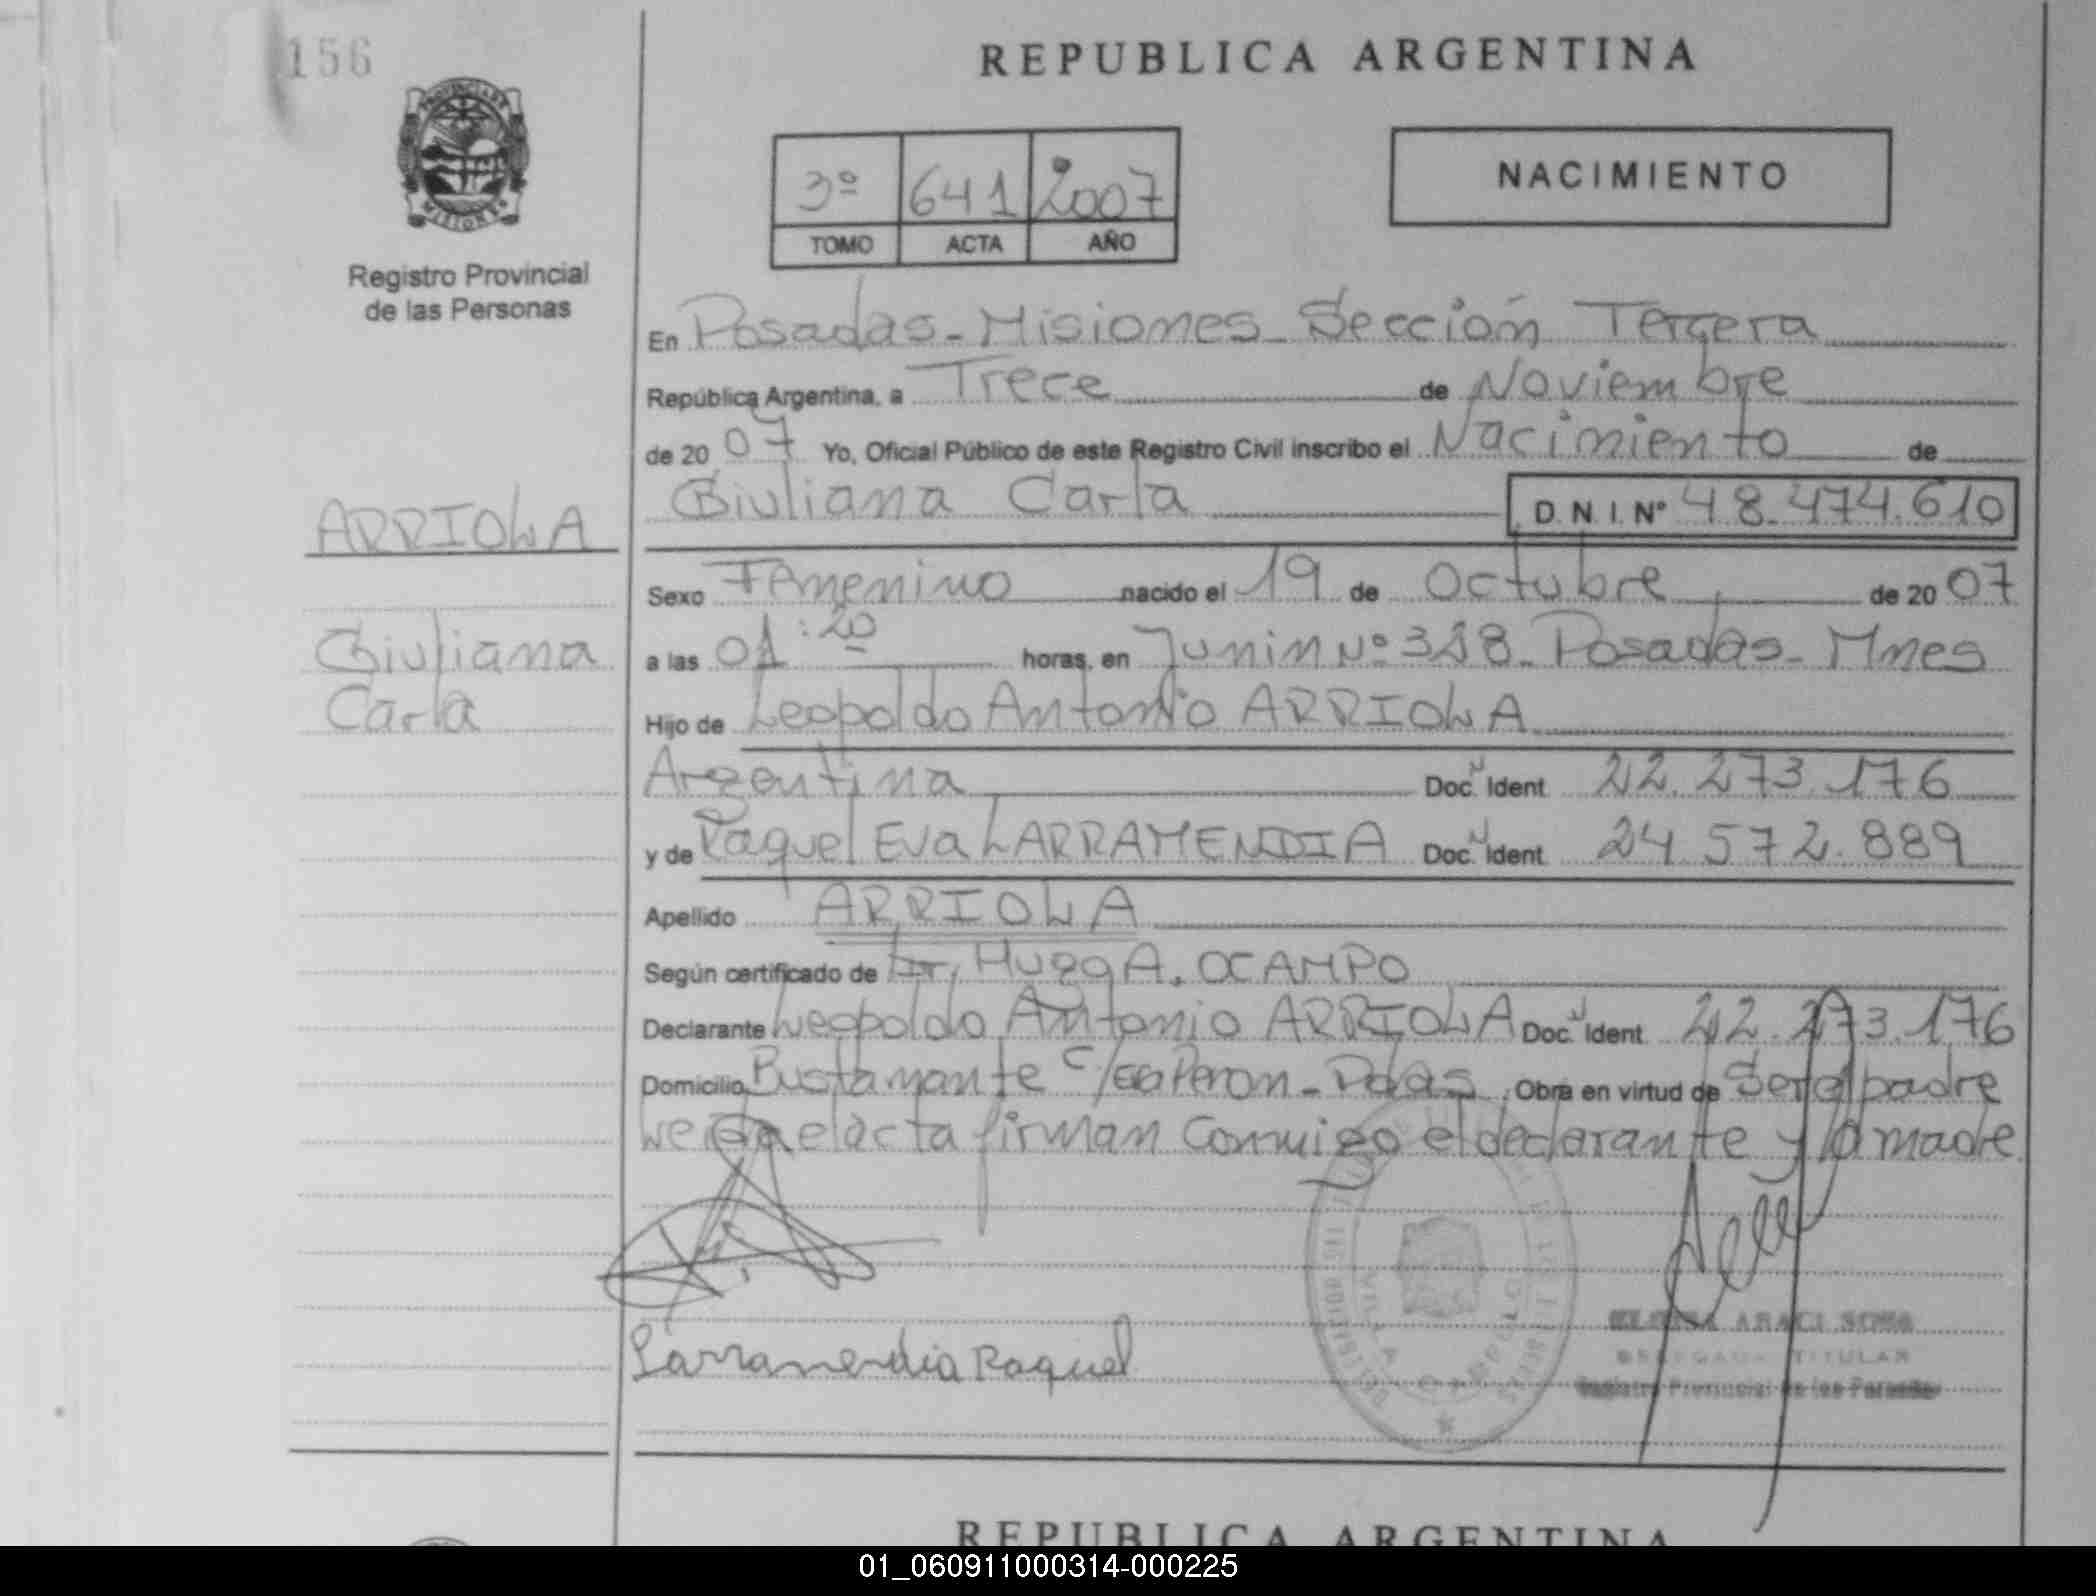 156
REPUBLICA ARGENTINA
PROVINCIA DE
MISIONES
Registro Provincial
de las Personas
3º 641 2007
TOMO ACTA AÑO
NACIMIENTO
En Posadas - Misiones - Sección Tercera
República Argentina, a Trece de Noviembre
de 20 07 Yo, Oficial Público de este Registro Civil inscribo el Nacimiento de
Giuliana Carla D.N.I. Nº 48.474.610
ARRIOLA
Sexo Femenino nacido el 19 de Octubre de 20 07
Giuliana
Carla
a las 01:20 horas, en Junin Nº 318 - Posadas - Mnes
Hijo de Leopoldo Antonio ARRIOLA
Argentina Doc. N Ident 22.273.176
y de Raquel Eva LARRAMENDIA Doc. N Ident 24.572.889
Apellido ARRIOLA
Según certificado de Dr. Hugo A. OCAMPO
Declarante Leopoldo Antonio ARRIOLA Doc. N Ident 22.273.176
Domicilio Bustamante c/ Peron - Pdas Obra en virtud de Ser el padre
Leida el acta firman Conmigo el declarante y la madre
Larramendia Raquel
ARACI
TITULAR
Registro Provincial de las Personas
REPUBLICA ARGENTINA
01_060911000314-000225